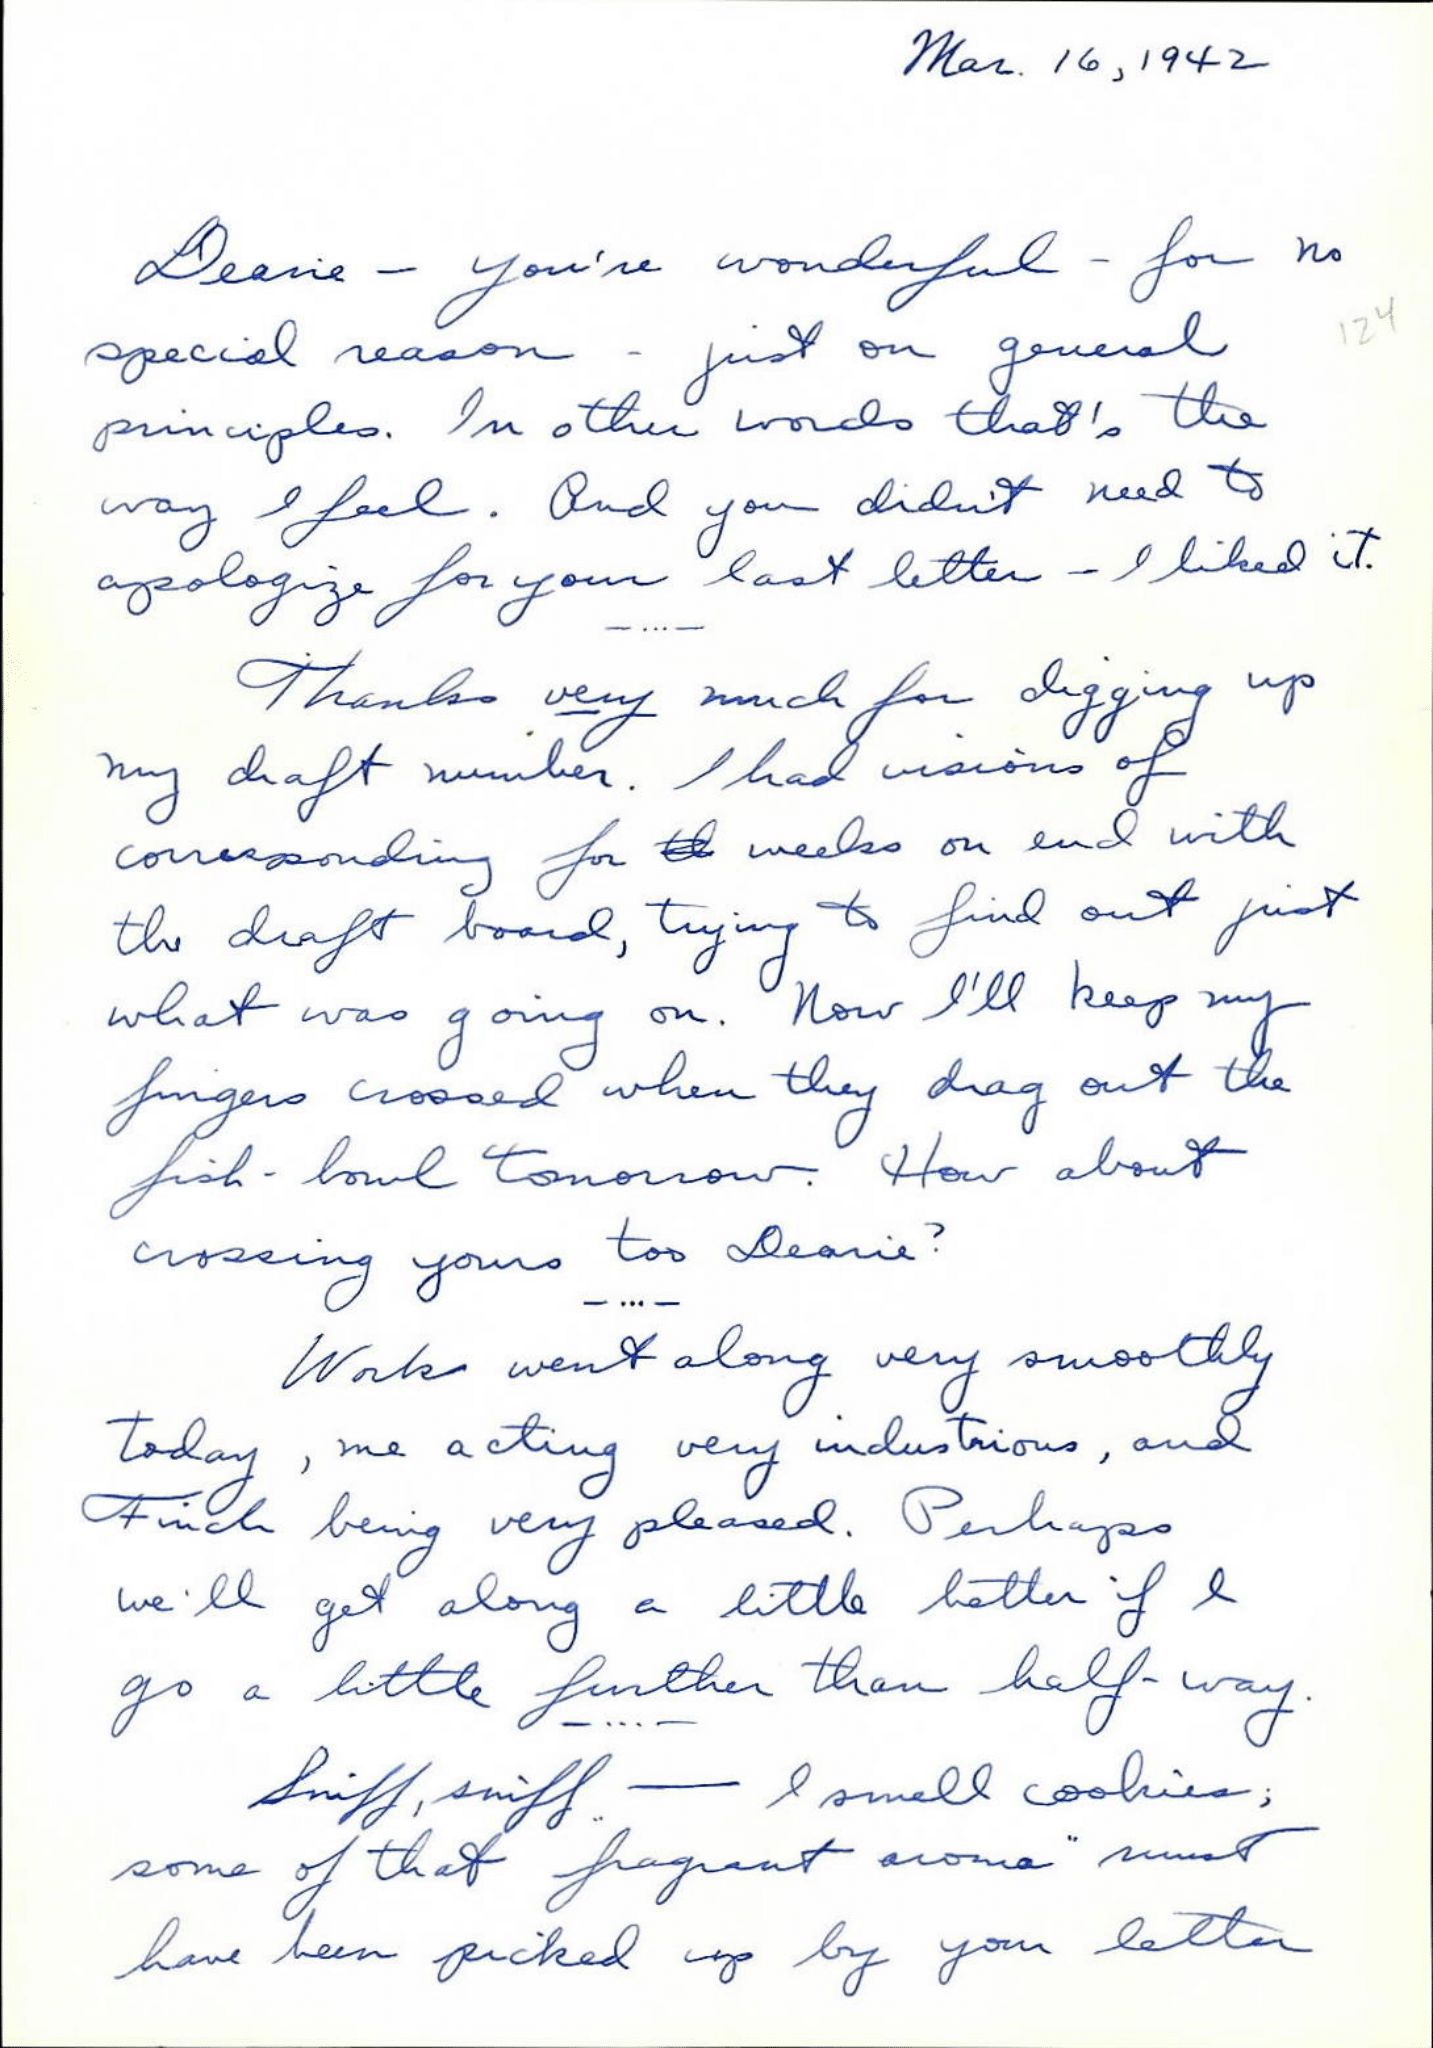 Mar. 16, 1942
Dearie — you're wonderful - for no
124
special reason - just on general
principles. In other words that's the
way I feel. And you didn't need to
apologize for your last letter - I liked it.
— ... —
Thanks very much for digging up
my draft number. I had visions of
corresponding for weeks on end with
the draft board, trying to find out just
what was going on. Now I'll keep my
fingers crossed when they drag out the
fish-bowl tomorrow. How about
crossing yours too Dearie?
— ... —
Work went along very smoothly
today, me acting very industrious, and
Finch being very pleased. Perhaps
we'll get along a little better if I
go a little further than half-way.
— ... —
Sniff, sniff — I smell cookies;
some of that "fragrant aroma" must
have been picked up by your letter